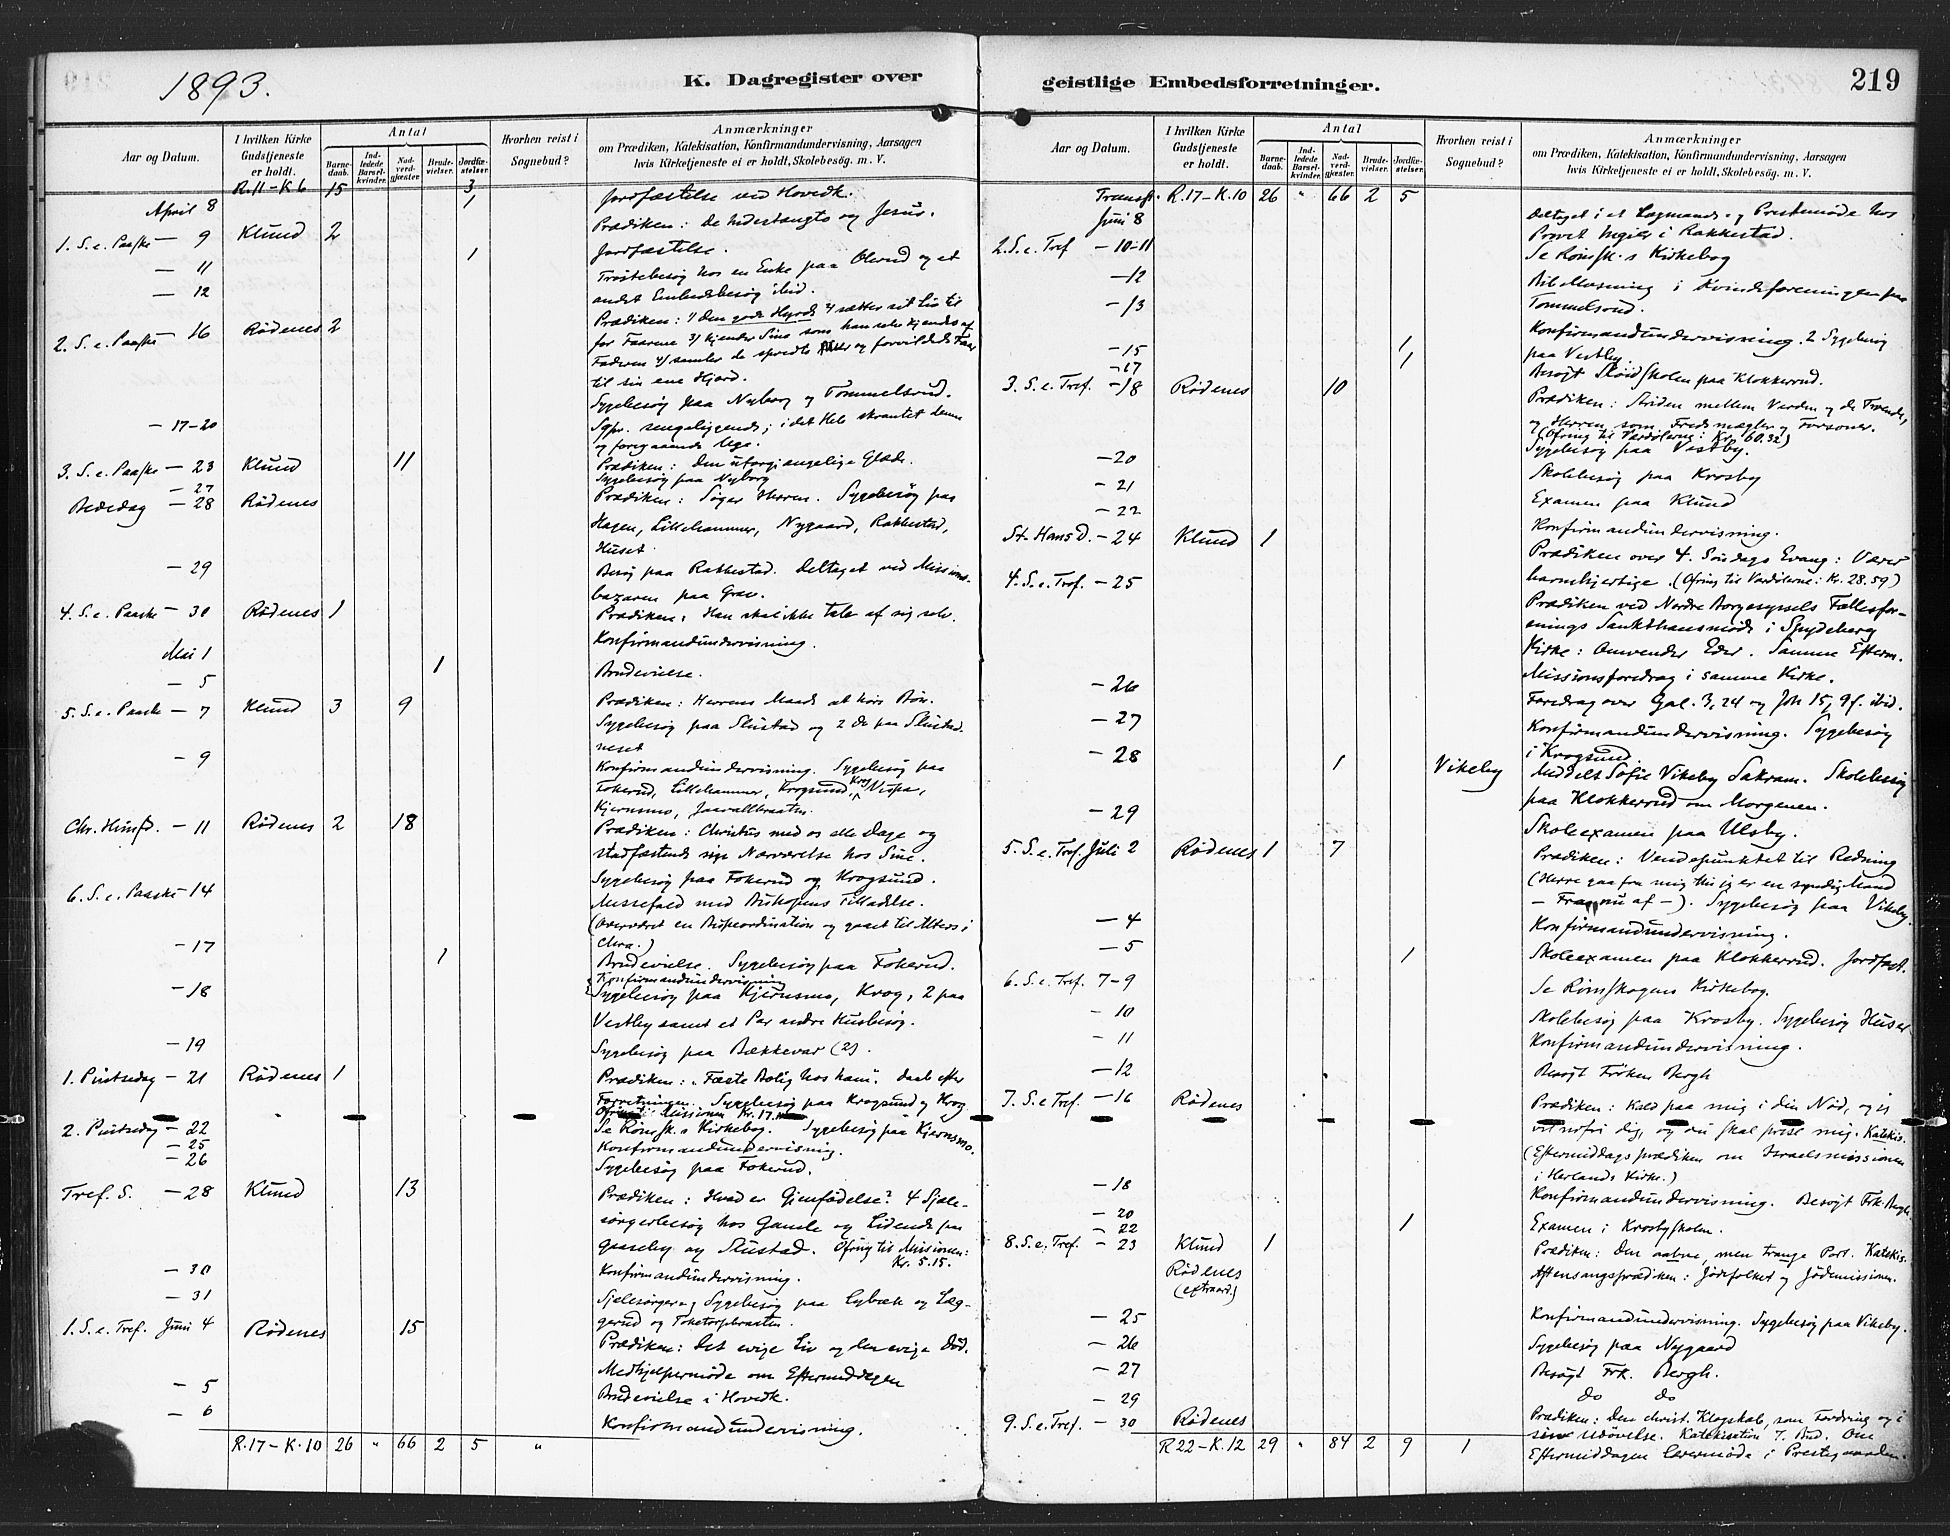 1893.
K. Dagregister over
Aar og Datum.
I hvilken Kirke Gudstjeneste er holdt.
Antal
Barnedaab.
Indledede Barselkvinder.
Nadverdgjæster
Brudevielser.
Jordfæstelser.
Hvorhen reist i Sognebud?
Anmærkninger
om Prædiken, Katekisation, Konfirmandundervisning, Aarsagen
hvis Kirketjeneste ei er holdt, Skolebesøg. m. V.
R.11-K6 15 3
April 8 1 Jordfæstelse ved Hovedk.
1. S. e. Paaske - 9 Klund 2 Prædiken: de og Jesus.
- 11 1 Jordfæstelse.
- 12 Trøstebesøg hos en Enke paa Olerud og et
andet Embedsbesøg ibid.
2. S. e. Paaske - 16 Rødenes 2 Prædiken: 1) den gode Hyrde 2) sætter sit Liv til
for Faarene 3) kjender Sine som han selv kjendes af
Faderen 4) samler de spredte og forvildede Faar
til sin ene Hjord.
- 17-20 Sygebesøg paa Nyborg og Tommelsrud.
Sgpr. sengeliggende; i det Hele skrantet denne
og foregaaende Uge.
3. S. e. Paaske - 23 Klund 11 Prædiken: Den uforgjængelige Glæde.
- 27 Sygebesøg paa Nyborg
Bededag - 28 Rødenes Prædiken: Søger Herren. Sygebesøg paa
Hagen, Lillehammer, Nygaard, Rakkestad,
Huset.
- 29 Besøg paa Rakkestad. Deltaget ved Missions-
bazaren paa Grav.
4. S. e. Paaske - 30 Rødenes 1 Prædiken: Han skal ikke tale af sig selv.
Mai 1 Konfirmandundervisning.
- 5 1 Brudevielse.
5. S. e. Paaske - 7 Klund 3 9 Prædiken: Herrens Maade at høre Bøn.
Sygebesøg paa Slustad og 2 do paa Slustad-
neset
- 9 Konfirmandundervisning. Sygebesøg paa
Fokerud, Lillehammer, Krogsund, Krog, Nespa,
Kjernsmo,
Chr. Himfd. - 11 Rødenes 2 18 Prædiken: Christus med os alle Dage og
stadfæstende sin Nærværelse hos Sine.
Sygebesøg paa Fokerud og Krogsund.
6. S. e. Paaske - 14 Messefald med Biskopens Tilladelse.
(Overværet en Bispeordination og gaaet til Alters i
Chra.)
- 17 1 Brudevielse. Sygebesøg paa Fokerud.
- 18 Konfirmandundervisning
Sygebesøg paa Kjernsmo, Krog, 2 paa
Vestby samt et Par andre Husbesøg.
- 19 Sygebesøg paa Bækkevar (2).
1. Pintsedag - 21 Rødenes 1 Prædiken: "Fæste Bolig hos ham". Daab efter
Forretningen. Sygebesøg paa Krogsund og Krog
Ofring til Missionen Kr. 17.
2. Pintsedag - 22 Se Rømsk.s Kirkebog. Sygebesøg paa Kjernsmo.
- 25 Konfirmandundervisning.
- 26 Sygebesøg paa Fokerud.
Tref. S. - 28 Klund 13 Prædiken: Hvad er Gjenfødelse? 4 Sjæle-
sørgerbesøg hos Gamle og Lidende paa
Gaaseby og Slustad. Ofring til Missionen:
Kr. 5.15.
- 30 Konfirmandundervisning.
- 31 Sjelesørger og Sygebesøg paa Lybæk og Læg-
gerud og Toketorpbraaten.
1. S. e. Tref. Juni 4 Rødenes 15 Prædiken: Det evige Liv og den evige Død.
Medhjelpermøde om Eftermiddagen
- 5 Brudevielse i Hovedk.
- 6 Konfirmandundervisning.
R.17-K.10 26 " 66 2 5 "
geistlige Embedsforretninger.
219
Aar og Datum.
I hvilken Kirke Gudstjeneste er holdt.
Antal
Barnedaab.
Indledede Barselkvinder.
Nadverdgjæster.
Brudevielser.
Jordfæstelser.
Hvorhen reist i Sognebud?
Anmærkninger
om Prædiken, Katekisation, Konfirmandundervisning, Aarsagen
hvis Kirketjeneste ei er holdt, Skolebesøg. m. V.
Transp. R.17-K.10 26 " 66 2 5
Juni 8 Deltaget i et Lagmands- og Prestemøde hos
Provst Ingier i Rakkestad.
2. S. e. Tref - 10-11 Se Rømsk.s Kirkebog
- 12 Bibellæsning i Kvindeforeningen paa
Tommelsrud.
- 13 Konfirmandundervisning. 2 Sygebesøg
paa Vestby
- 15 1
- 17 1 Besøgt Sløidskolen paa Klokkerrud.
3. S. e. Tref. - 18 Rødenes 10 Prædiken: Striden mellem Verden og de Troende,
og Herren som Fredsmægler og Forsoner.
(Ofring til Vardølerne: Kr. 60.32)
- 20 Sygebesøg paa Vestby.
- 21 Skolebesøg paa Krosby
- 22 Examen paa Klund
Konfirmandundervisning.
St. Hans D. - 24 Klund 1 Prædiken over 4. Søndags Evang: Værer
barmhjertige. (Ofring til Vardølerne: Kr. 28.59)
4. S. e. Tref. - 25 Prædiken ved Nordre Borgesyssels Fællesfor-
enings Sankthansmøde i Spydeberg
Kirke: Omvender Eder. Samme Efterm.
Missionsforedrag i samme Kirke.
- 26 Foredrag over Gal. 3,24 og Joh 15,9 f. ibid.
- 27 Konfirmandundervisning. Sygebesøg
i Krogsund.
- 28 1 Vikeby Meddelt Sofie Vikeby Sakram. Skolebesøg
paa Klokkerrud om Morgenen.
- 29 Skoleexamen paa Ulsby.
5. S. e. Tref. Juli 2 Rødenes 1 7 Prædiken: Vendepunktet til Redning
(Herre gaa fra mig thi jeg er en syndig Mand
- Fra nu af -). Sygebesøg paa Vikeby.
- 4 Konfirmandundervisning.
- 5 1 Skoleexamen paa Klokkerrud. Jordfæst.
6. S. e. Tref. 7-9 Se Rømskogens Kirkebog.
- 10 Skolebesøg paa Krosby. Sygebesøg Huser
- 11 Konfirmandundervisning.
- 12 Besøgt Frøken Bergh
7. S. e Tref. - 16 Rødenes Prædiken: Kald paa mig i din Nød, og jeg
vil udfri dig, og du skal prise mig. Katekis.
(Eftermiddagsprædiken om Israelsmissionen
i Herlands Kirke.)
- 18 Konfirmandundervisning. Besøgt Frk. Bergh.
- 20 Examen i Krosby skolen.
- 22 1
8. S. e. Tref. - 23 Klund 1 Prædiken: Den aabne, men trange Port. Katekis.
Rødenes
(extraord.) Aftensangsprædiken: Jødefolket og Jødemissionen.
- 25 Konfirmandundervisning. Sygebesøg paa Vikeby.
- 26 Sygebesøg paa Nygaard
- 27 Besøgt Frk. Bergh.
- 29 do do
9. S. e. Tref. - 30 Rødenes Prædiken: Den christ. Klogskab, som Fordring og i
sin Udøvelse. Katekisation 7. Bud. Om
Eftermiddagen Læremøde i Prestegaarden.
R 22-K.12 29 " 84 2 9 1